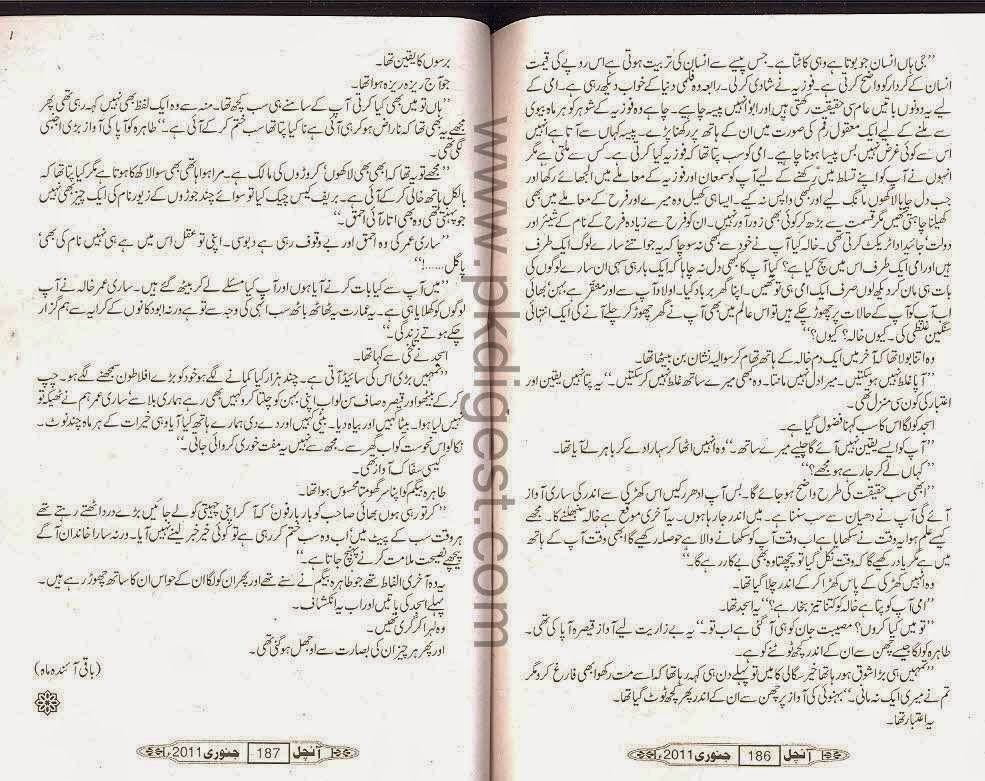 ’’جی ہاں انسان جو بوتا ہے وہی کاٹتا ہے۔ جس پیسے سے انسان کی تربیت ہوتی ہے اس روپے کی قیمت
انسان کے کردار کو واضح کرتی ہے۔ فوزیہ نے شادی کر لی۔ رابعہ وہ فلمی دنیا کے خواب دیکھ رہی ہے۔ امی کے
لیے یہ دونوں باتیں عام سی حقیقت رکھتی ہیں اور ابو انہیں پیسہ چاہیے۔ چاہے وہ فوزیہ کے شوہر کو ہر ماہ بیوی
سے ملنے کے لیے ایک معقول رقم کی صورت میں ان کے ہاتھ پر رکھنا پڑے۔ پیسہ کہاں سے آتا ہے انہیں
اس سے کوئی غرض نہیں بس پیسا ہونا چاہیے۔ امی کو سب پتا تھا کہ فوزیہ کیا کرتی ہے۔ کس سے ملتی ہے مگر
انہوں نے آپ کو اپنے تسلط میں رکھنے کے لیے آپ کو سمعان اور فوزیہ کے معاملے میں الجھائے رکھا اور
جب دل چاہا لاکھوں مانگ لیے اور بھی واپس نہ کیے۔ ایسا ہی کھیل وہ میرے اور فرح کے معاملے میں بھی
کھیلنا چاہتی تھیں مگر قسمت سے بڑھ کر کوئی بھی زور آور نہیں۔ ان کو فرح سے زیادہ فرح کے نام کے شیئر اور
دولت‘ جائیداد اٹریکٹ کرتی تھی۔ خالہ کیا آپ نے خود سے بھی نہ سوچا کہ یہ جو اتنے سارے لوگ ایک طرف
ہیں اور امی ایک طرف اس میں سچ کیا ہے؟ کیا آپ کا بھی دل نہ چاہا کہ ایک بار ہی سہی ان سارے لوگوں کی
بات ہی مان کر دیکھ لوں صرف ایک امی ہی تو تھیں۔ اپنا گھر برباد کیا۔ اولاد آپ سے اور معتبر ہے بہن‘ بھائی
اب آپ کو آپ کے حالات پر چھوڑ چکے ہیں تو اس عالم میں بھی آپ نے گھر چھوڑ کر چلے آنے کی ایک انتہائی
سنگین غلطی کی۔ کیوں خالہ؟ کیوں؟‘‘
وہ اتنا بولا تھا کہ آخر میں ایک دم خالہ کے ہاتھ تھام کر سوالیہ نشان بن بیٹھا تھا۔
’’آپا غلط نہیں ہو سکتیں۔ میرا دل نہیں مانتا۔ وہ کبھی میرے ساتھ غلط نہیں کر سکتیں۔‘‘ یہ پتا نہیں یقین اور
اعتبار کی کون سی منزل تھی۔
اسجد کو لگا اس کا سب کہنا فضول گیا ہے۔
’’آپ کو ایسے یقین نہیں آئے گا چلیے میرے ساتھ۔‘‘ وہ انہیں اٹھا کر سہارا دے کر باہر لے آیا تھا۔
’’کہاں لے کر جا رہے ہو مجھے؟‘‘
’’ابھی سب حقیقت کی طرح واضح ہو جائے گا۔ بس آپ ادھر رکیں اس کھڑکی سے اندر کی ساری آواز
آئے گی آپ نے دھیان سے سب سننا ہے۔ میں اندر جا رہا ہوں۔ یہ آخری موقع ہے خالہ سنبھلنے کا۔ مجھے
کیسے علم ہوا یہ وقت نے سکھایا ہے اب وقت آپ کو سکھانے والا ہے حوصلہ رکھیے گا ابھی وقت آپ کے ہاتھ
میں ہے مگر یاد رکھیے گا کہ وقت نکل گیا تو پچھتاوہ بھی بے کار رہے گا۔‘‘
وہ انہیں کھڑکی کے پاس کھڑا کر کے اندر چلا گیا تھا۔
’’امی آپ کو پتا ہے خالہ کو کتنا تیز بخار ہے؟‘‘ یہ اسجد تھا۔
’’تو میں کیا کروں؟ مصیبت جان کو ہی آ گئی ہے اب تو۔‘‘ یہ بے زاریت لیے آواز قیصرہ آپا کی تھی۔
طاہرہ کو لگا جیسے چھن سے ان کے اندر کچھ ٹوٹنے کو ہے۔
’’تمہیں ہی بڑا شوق ہو رہا تھا خیر سگالی کا میں تو پہلے دن ہی کہہ رہا تھا کہ اسے مت رکھو ابھی فارغ کرو مگر
تم نے میری ایک نہ مانی۔‘‘ بہنوئی کی آواز پر چھن سے ان کے اندر پھر کچھ ٹوٹ گیا تھا۔
یہ اعتبار تھا۔
آنچل 186 جنوری 2011ء
1
برسوں کا یقین تھا۔
جو آج ریزہ ریزہ ہوا تھا۔
’’ہاں تو میں بھی کیا کرتی آپ کے سامنے ہی سب کچھ تھا۔ منہ سے وہ ایک لفظ بھی نہیں کہہ رہی تھی پھر
مجھے یہ بھی تھا کہ ناراض ہو کر ہی آئی ہے نا کیا پتا تھا سب ختم کر کے آئی ہے۔‘‘ طاہرہ کو آپا کی آواز بڑی اجنبی
لگی تھی۔
’’مجھے تو یہ تھا کہ ابھی بھی لاکھوں‘ کروڑوں کی مالک ہے۔ مرا ہوا ہاتھی بھی سوا لاکھ کا ہوتا ہے مگر کیا پتا تھا کہ
بالکل ہاتھ خالی کر کے آئی ہے۔ بریف کیس چیک کیا تو سوائے چند جوڑوں کے زیور نام کی ایک چیز بھی نہیں
جو پہنتی تھی وہ بھی اتار آئی احمق۔‘‘
’’ساری عمر کی وہ احمق اور بے وقوف رہی ہے دبوسی۔ اپنی تو عقل اس میں ہے ہی نہیں نام کی بھی‘
پاگل......!‘‘
’’میں آپ سے کیا بات کرنے آیا ہوں اور آپ کیا مسئلے لے کر بیٹھ گئے ہیں۔ ساری عمر خالہ نے آپ
لوگوں کو کھلایا ہی ہے۔ یہ عمارت یہ ٹھاٹھ باٹھ سب انہی کی وجہ سے تو ہے ورنہ ابو دکانوں کے کرایہ سے ہم گزار
چکے ہوتے زندگی۔‘‘
اسجد نے تلخی سے کہا تھا۔
’’تمہیں بڑی اس کی سائیڈ آتی ہے۔ چند ہزار کیا کمانے لگے ہو خود کو بڑے افلاطون سمجھنے لگے ہو۔ چپ
کر کے بیٹھو اور قیصرہ صاف سن لو اب اپنی بہن کو چلتا کرو نہیں بھی رہے ہماری بلا سے ساری عمر ہم نے ٹھیکہ تو
نہیں لیا ہوا۔ بیٹا نہیں اور بیاہ دیا۔ بیٹی نہیں اور دے دی ہمارے ہاتھ کیا آیا وہی خیرات کے ہر ماہ چند نوٹ۔
نکالو اس نحوست کو اب گھر سے۔ مجھ سے نہیں یہ مفت خوری کروائی جاتی۔‘‘
کیسی سفاک آواز تھی۔
طاہرہ بیگم کو اپنا سر گھومتا محسوس ہوا تھا۔
’’کر تو رہی ہوں بھائی صاحب کو بار بار فون‘ کہ آ کر اپنی چہیتی کو لے جائیں بڑے درد اٹھتے رہتے تھے
ہر وقت سب کے پیٹ میں اب وہ سب ختم کر رہی ہے تو کوئی خیر خبر لینے نہیں آیا۔ ورنہ سارا خاندان آگے
پیچھے نصیحت ملامت کرنے پہنچ جاتا ہے۔‘‘
یہ وہ آخری الفاظ تھے جو طاہرہ بیگم نے سنے تھے اور پھر ان کو لگا ان کے حواس ان کا ساتھ چھوڑ رہے ہیں۔
پہلے اسجد کی باتیں اور اب یہ انکشاف۔
وہ لہرا کر گری تھیں۔
اور پھر ہر چیز ان کی بصارت سے اوجھل ہو گئی تھی۔
(باقی آئندہ ماہ)
آنچل 187 جنوری 2011ء
www.pkdigest.com